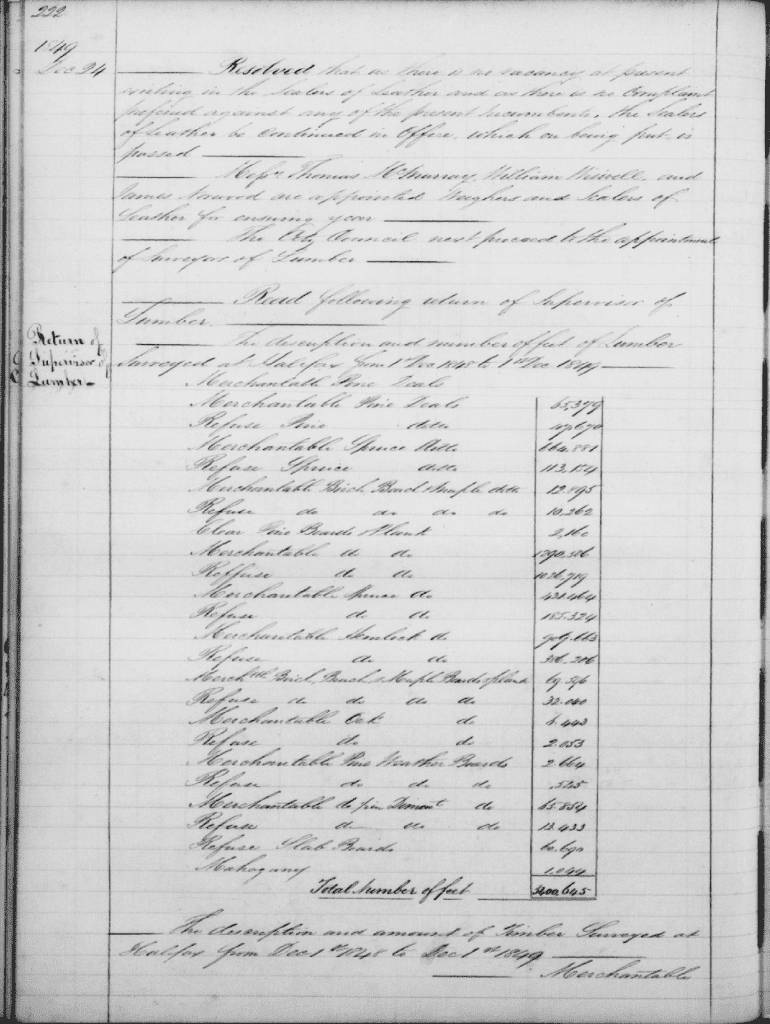 222
1849
Dec 24
Resolved that as there is no vacancy at present
existing in the Sealers of Leather and as there is no Complaint
prefered against any of the present Incumbents, the Sealers
of Leather be Continued in Office, which on being put is
passed
Messrs Thomas McMurray, William Wisewell, and
James Norwood are appointed Weighers and Sealers of
Leather for ensuing year
The City Council next proceed to the appointment
of Surveyors of Lumber
Read following return of Supervisor of
Lumber.
Return of
Supervisor of
Lumber
The description and number of feet of Lumber
Surveyed at Halifax from 1st Dec 1848 to 1st Dec 1849
Merchantable Pine Deals
Merchantable Pine Deals 65,379
Refuse Pine ditto 47,670
Merchantable Spruce ditto 664,881
Refuse Spruce ditto 113,154
Merchantable Birch, Beach & Maple ditto 12,895
Refuse do do do do 10,262
Clear Pine Boards & Plank 2,160
Merchantable do do
Reffuse do do 1026,719
Merchantable Spruce do 431,464
Refuse do do 185,324
Merchantable Hemlock do
Refuse do do 316,216
Merchble Birch, Beach & Maple Boards & plank
Refuse do do do do 32,040
Merchantable Oak do 6,443
Refuse do do 2,053
Merchantable Pine Weather Boards 2,664
Refuse do do do
Merchantable do do 65,854
Refuse do do do 13,433
Refuse Slab Boards
Mahogany 1,044
Total Number of feet
The description and amount of Timber Surveyed at
Halifax from Dec 1st 1848 to Dec 1st 1849
Merchantable